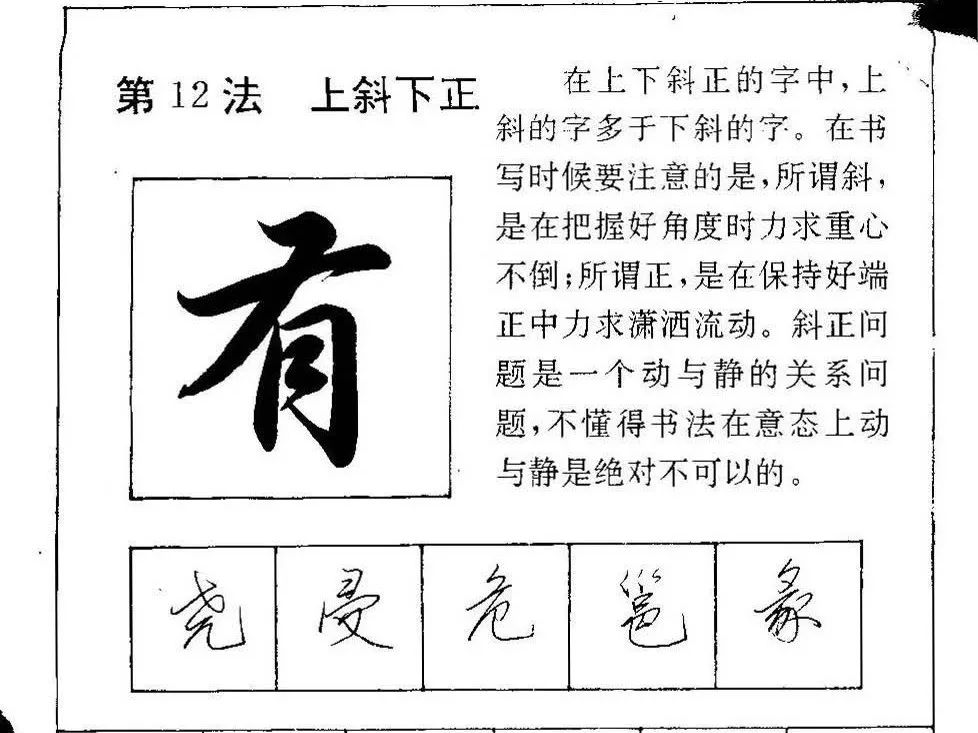 第12法 上斜下正
在上下斜正的字中，上
斜的字多于下斜的字。在书
写时候要注意的是，所谓斜，
是在把握好角度时力求重心
不倒；所谓正，是在保持好端
正中力求潇洒流动。斜正问
题是一个动与静的关系问
题，不懂得书法在意态上动
与静是绝对不可以的。
有
尧 危 邕 彖